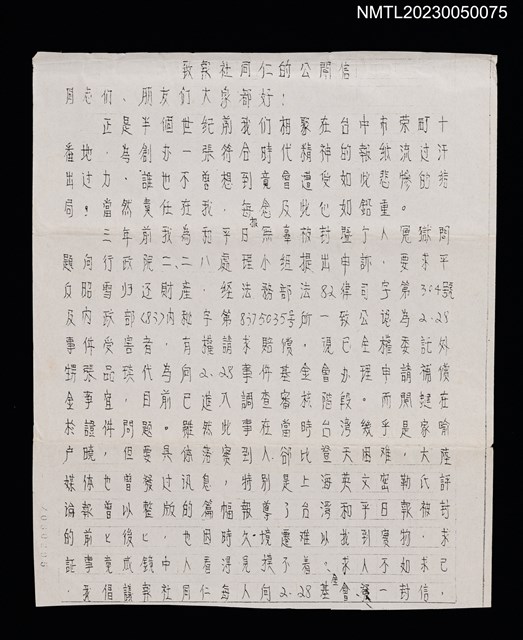 NMTL20230050075
致報社同仁的公開信
同志们、朋友们大家都好！
正是半個世纪前我们相聚在台中市荣町十
番地，為創办一張符合時代精神的報紙流过汗
出过力，誰也不曾想到竟會遭受如此悲慘的结
局！當然責任在我，每念及此心如鉛重。
三年前我為和平日報無辜被封暨丁人冤獄問
题向行政院二、二八處理小组提出申訴，要求平
反昭雪归还財產，经法務部法82律司字第304號
及内政部(83)内秘字第8375035号所一致公認為2.28
事件受害者，有權請求賠償，现已全權委託外
甥張品瑛代為向2.28事件基金會办理申請補償
金事宜，目前已進入調查審核階段。而関键在
於證件問题。雖然此事在當時台湾幾乎是家喻
户曉，但要具体落實到人，卻比登天困难，大陸
媒体也曾發过讯息，特别是上海英文密勒氏評
論報曾以整版的篇幅報導了台湾和平日報被封
的前前後後，也因時久境遷难以找到實物。求
証事竟成镜中人看得見摸不着。求人不如求己，
我倡議報社同仁每人向2.28基金會 一封信，